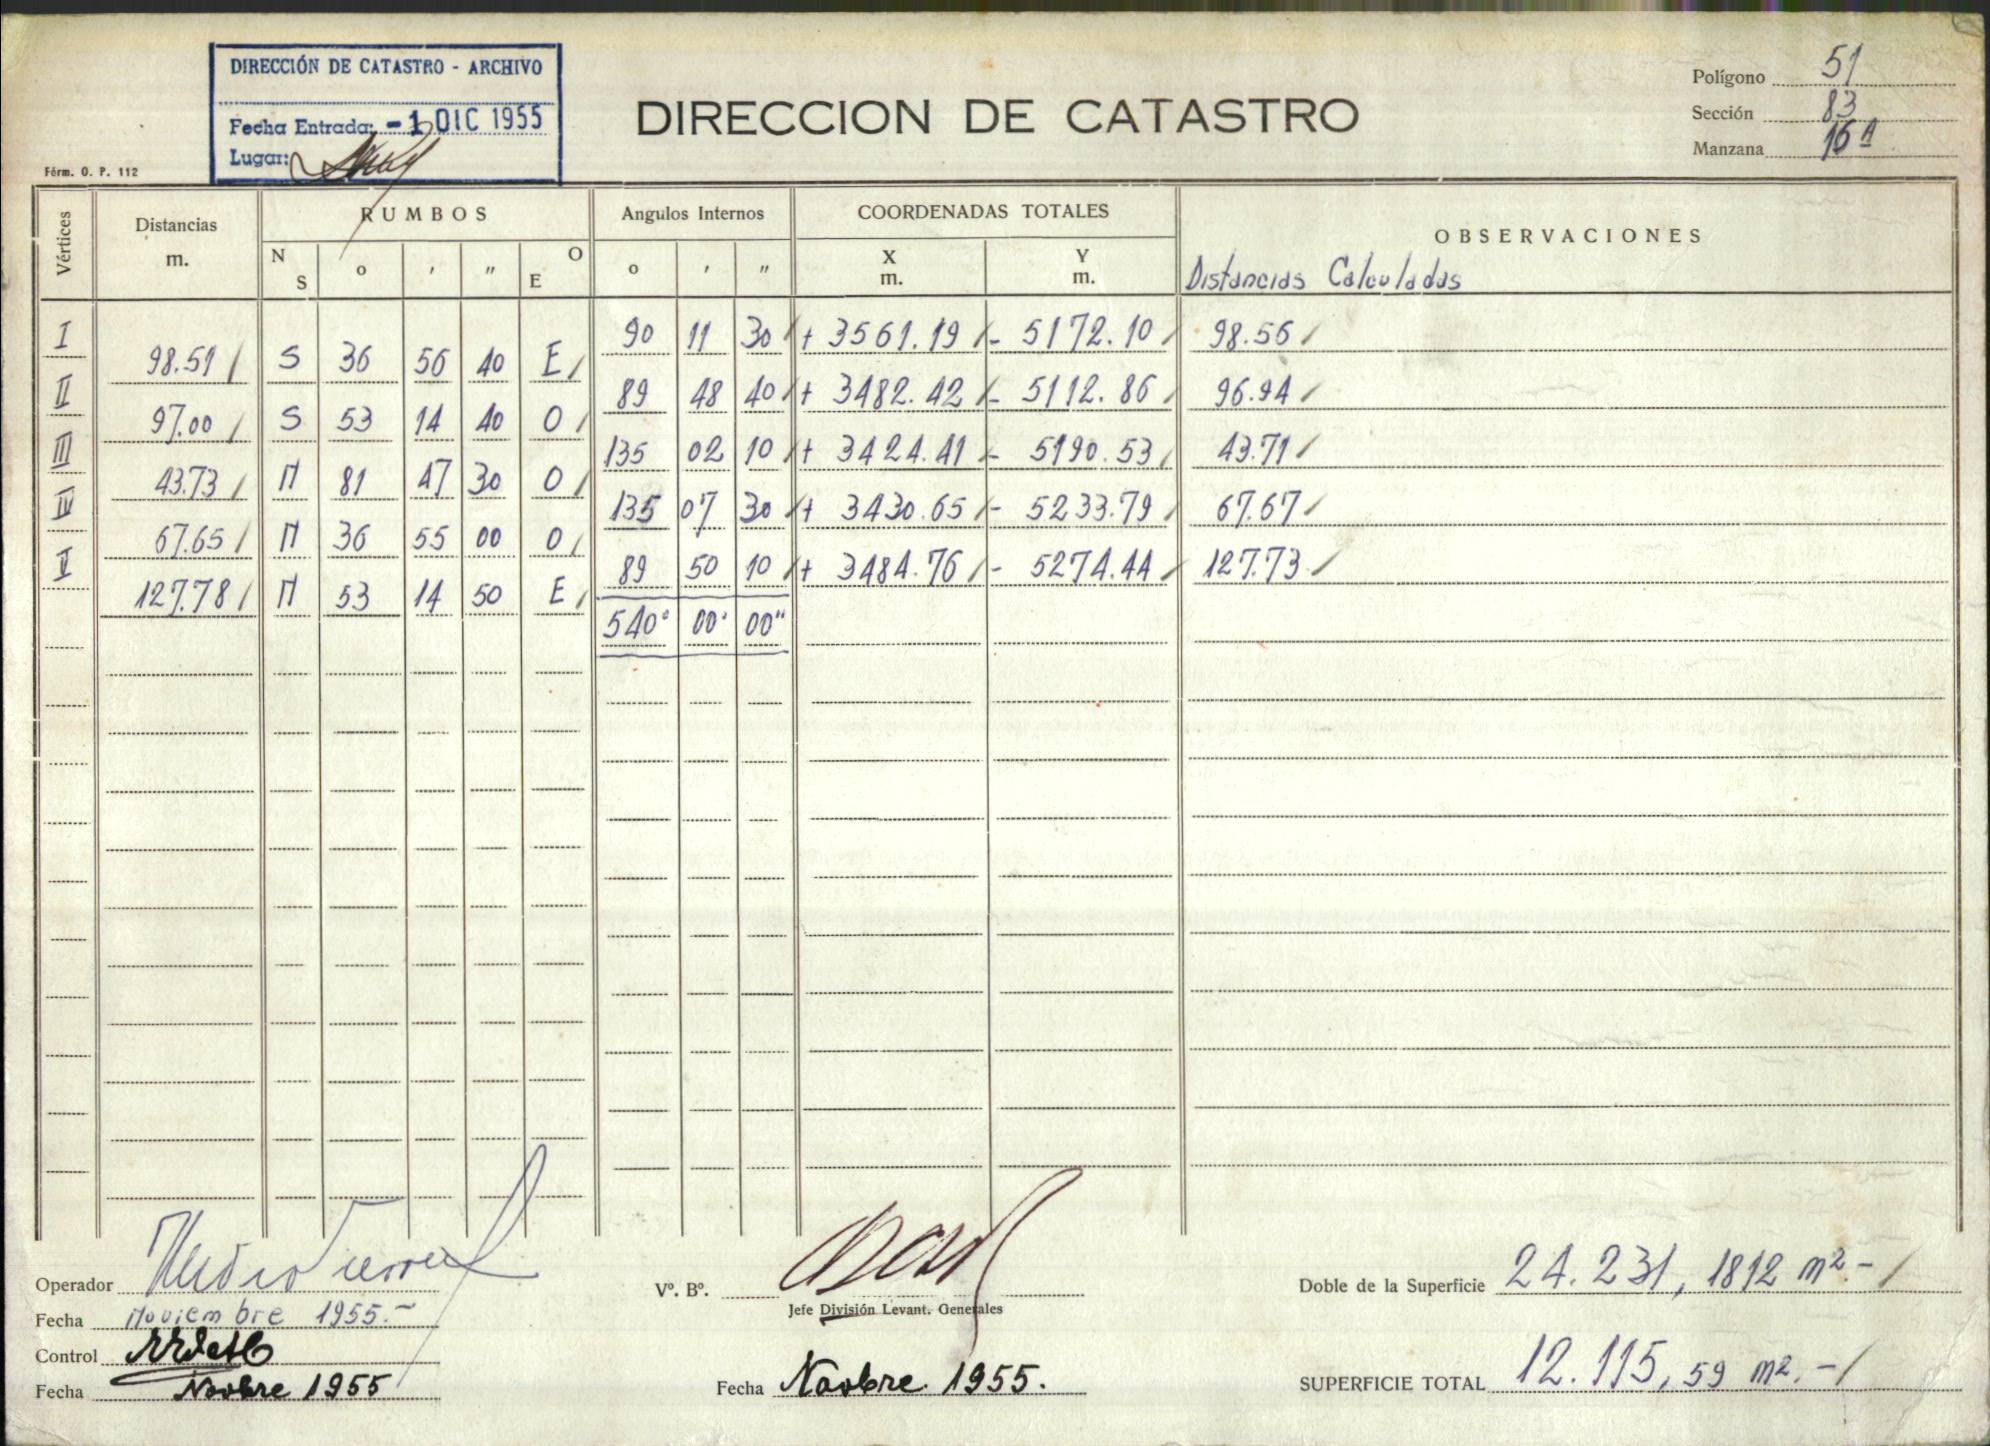 DIRECCIÓN DE CATASTRO - ARCHIVO
Fecha Entrada: -1 DIC 1955
Lugar:
Fórm. O. P. 112
DIRECCION DE CATASTRO
Polígono 51
Sección 83
Manzana 16 A
Vértices Distancias m. RUMBOS Angulos Internos COORDENADAS TOTALES OBSERVACIONES
N S o ' " O E o ' " X m. Y m. Distancias Calculadas
I 90 11 30 + 3561.19 - 5172.10 98.56
98.51 S 36 56 40 E
II 89 48 40 + 3482.42 - 5112.86 96.94
97.00 S 53 14 40 O
III 135 02 10 + 3424.41 - 5190.53 43.71
43.73 N 81 47 30 O
IV 135 07 30 + 3430.65 - 5233.79 67.67
67.65 N 36 55 00 O
V 89 50 10 + 3484.76 - 5274.44 127.73
127.78 N 53 14 50 E
540° 00' 00"
Operador
Fecha Noviembre 1955.-
Control
Fecha Novbre 1955
Vº. Bº.
Jefe División Levant. Generales
Fecha Novbre 1955.
Doble de la Superficie 24.231,1812 m2.-
SUPERFICIE TOTAL 12.115,59 m2.-